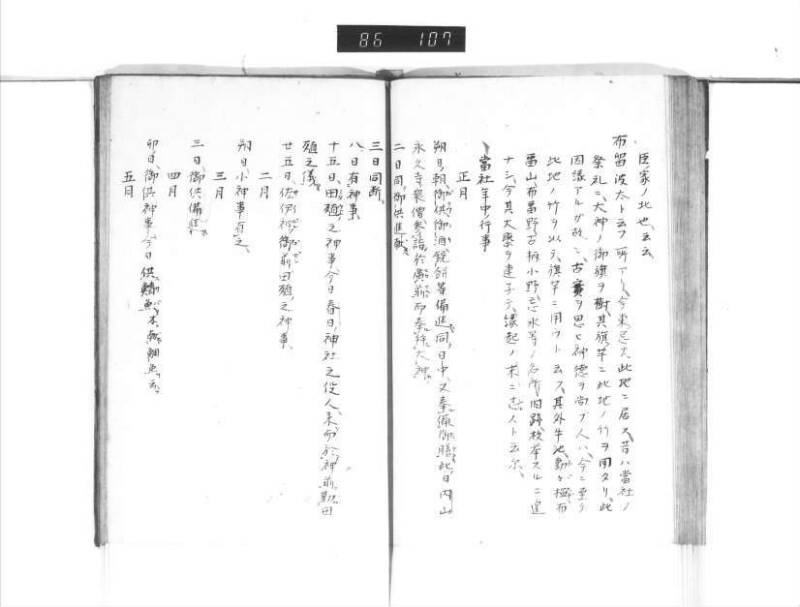 86 107
臣家ノ北也、云云
布留波太ト云フ所アリ、今東忌火此地ニ居ス、昔ハ當社ノ
祭礼ニ大神ノ御旗ヲ樹、其旗竿ニ此地ノ竹ヲ用タリ、此
因縁アルガ故ニ、古實ヲ思ヒ神德ヲ尚ブ人ハ、今ニ至リ
此地ノ竹ヲ以テ旗竿ニ用ウト云ス、其外牛池、動ガ橋、布
留山布留野古柄小野、忘水等ノ名所旧跡、枚挙スルニ遑
ナシ、今其大槩ヲ建テ、縁起ノ末ニ志ストト云尔、
當社年中行事
正月
朔日、朝御供御酒鏡餅等備進、同日中、又奉備御膳、此日内山
永久寺衆僧参詣於廣前而奉拜大神、
二日、同御供進献、
三日同断、
八日有神事、
十五日、田殖之神事、今日春日神社之伇人、来而於神前勤田
殖之儀、
廿五日、佐伊神御前田殖之神事、
二月
朔日小神事有之、
三月
三日御供備進、
四月
卯日、御供神事、今日供鱒魚
五月